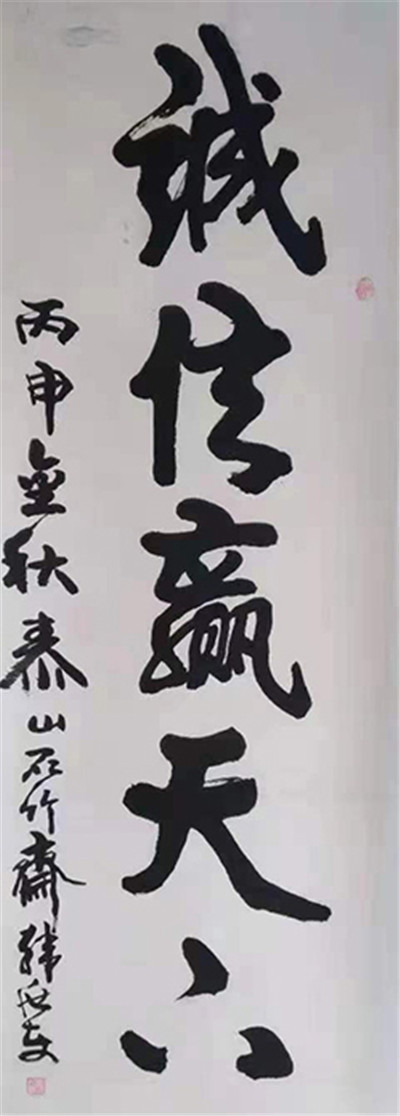 誠信贏天下
丙申金秋泰山石竹齋韓